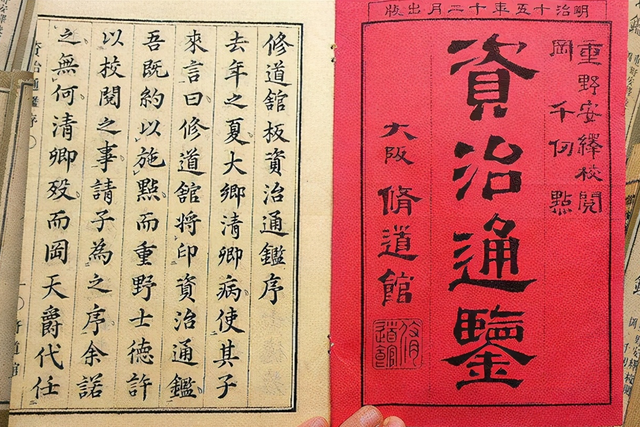 明治十五年十二月出版
重野安繹校閱
岡千仞點
資治通鑒
大阪 脩道館
脩道館
修道館板資治通鑑序
去年之夏大鄉清卿病使其子
來言曰修道館將印資治通鑑
吾既約以施點而重野士德許
以校閱之事請子為之序余諾
之無何清卿歿而岡天爵代任
資治通鑑序 一 脩道館